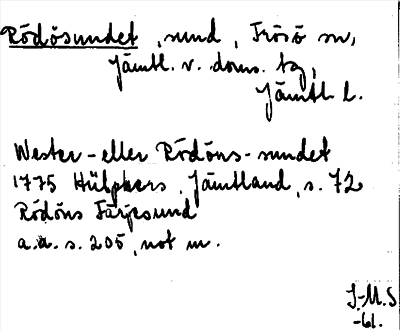 Rödösundet, sund, Frösö sn,
Jämtl. v. doms. tg,
Jämtl. l.
Wester- eller Rödöns-sundet
1775 Hülphers, Jämtland, s. 72
Rödöns Färjesund
a.a. s. 205, not m.
J-M.S
-61.